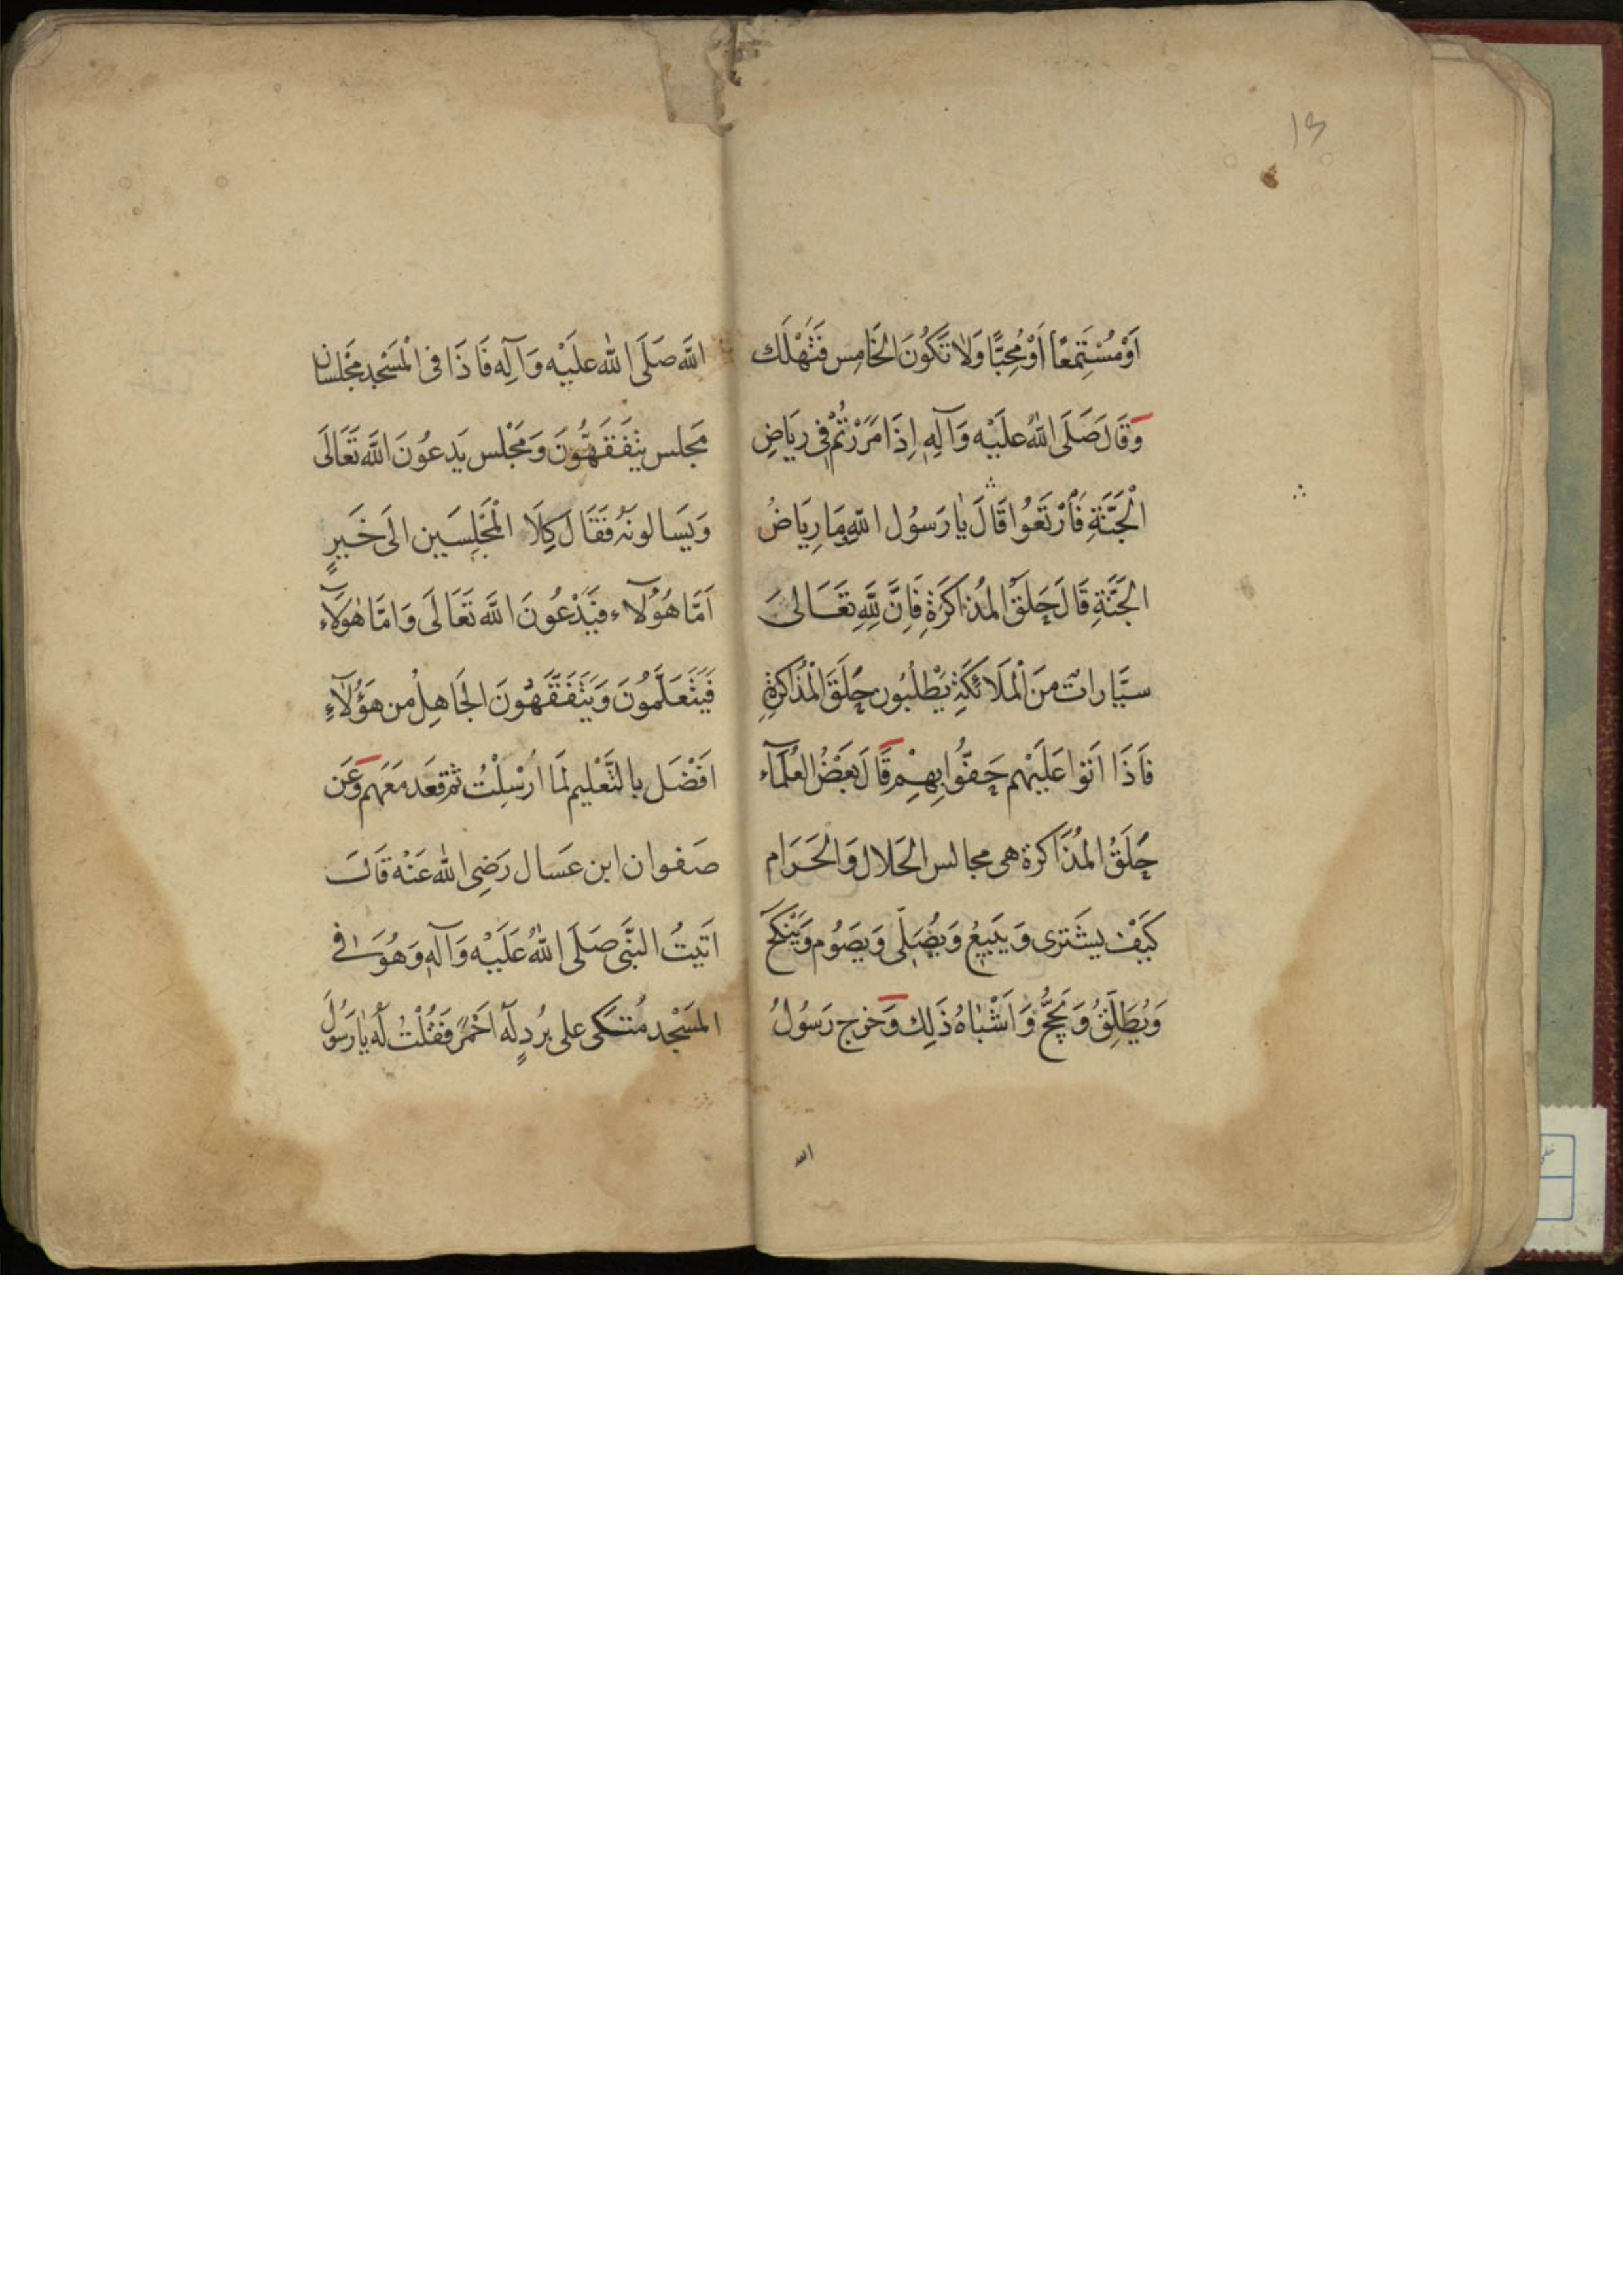 ١٣
اَوْ مُسْتَمِعًا اَوْ مُحِبًّا وَلَا تَكُونَ الْخَامِس فَتَهْلَك
وَقَالَ صَلَى اللّٰهُ عَلَيْه وَآلِهِ اِذَا مَرَرْتُمْ فِى رِيَاضِ
الْجَنَّةِ فَارْتَعُوا قَالَ يٰا رَسُول اللّٰهِ مَا رِيَاضُ
الْجَنَّةِ قَالَ حِلَقْ الْمُذاكَرَةِ فَاِنَّ لِلّٰهِ تَعَالىَ
سَيَّاراتٌ مِنَ الْمَلَائكَةِ يَطْلبُون حِلَقَ الْمُذَاكَرَةِ
فَاذَا اتَوا عَلَيْهم حَفّوُا بِهِمْ قَالَ بَعْضُ الْعُلَمَآء
حِلَقُ الْمُذَاكَرة هى مجالس الحَلال وَالحَرَام
كَيْفَ يشَترى وَيَبيعُ وَيُصَلّى وَيصَوُم وَيَنْكَح
وَيُطَلِّقُ وَيَحُجُّ وَاَشْبٰاهُ ذَلِك وَخرج رَسُولُ
الله
اللَّه صَلَى اللّٰه عليَهْ وَآلِه فَاذَا فى الْمَسْجِد مَجْلسان
مَجلس يتَفَقَهُّونَ وَمَجْلس يَدعوُنَ اللَّهَ تَعَالَى
وَيَسَالونَهُ فَقَالَ كِلَا الْمَجْلِسَين الىَ خَيرٍ
اَمَّا هٰؤُلآء فَيَدْعُونَ اللَّه تَعَالَى وَامَّا هٰؤلَآءِ
فَيَتَعَلَّمُونَ وَيَتَفَقَّهُّونَ الْجَاهِلْ مِن هَؤُلآءِ
افَضْلَ بالتَّعْليم لَمَا ارُسْلِتُ ثم قعَد مَعَهم وَعَن
صَفوان ابن عَسال رَضِى اللّٰه عَنْه قَالَ
اتَيتُ النبَّى صَلَى اللّٰهُ عَلَيْه وَآلهِ وَهُوَ فى
المَسْجد مُتكى على برُدٍ لَهُ اَحْمَر فَقُلْتُ لَهُ يٰا رَسُولَ